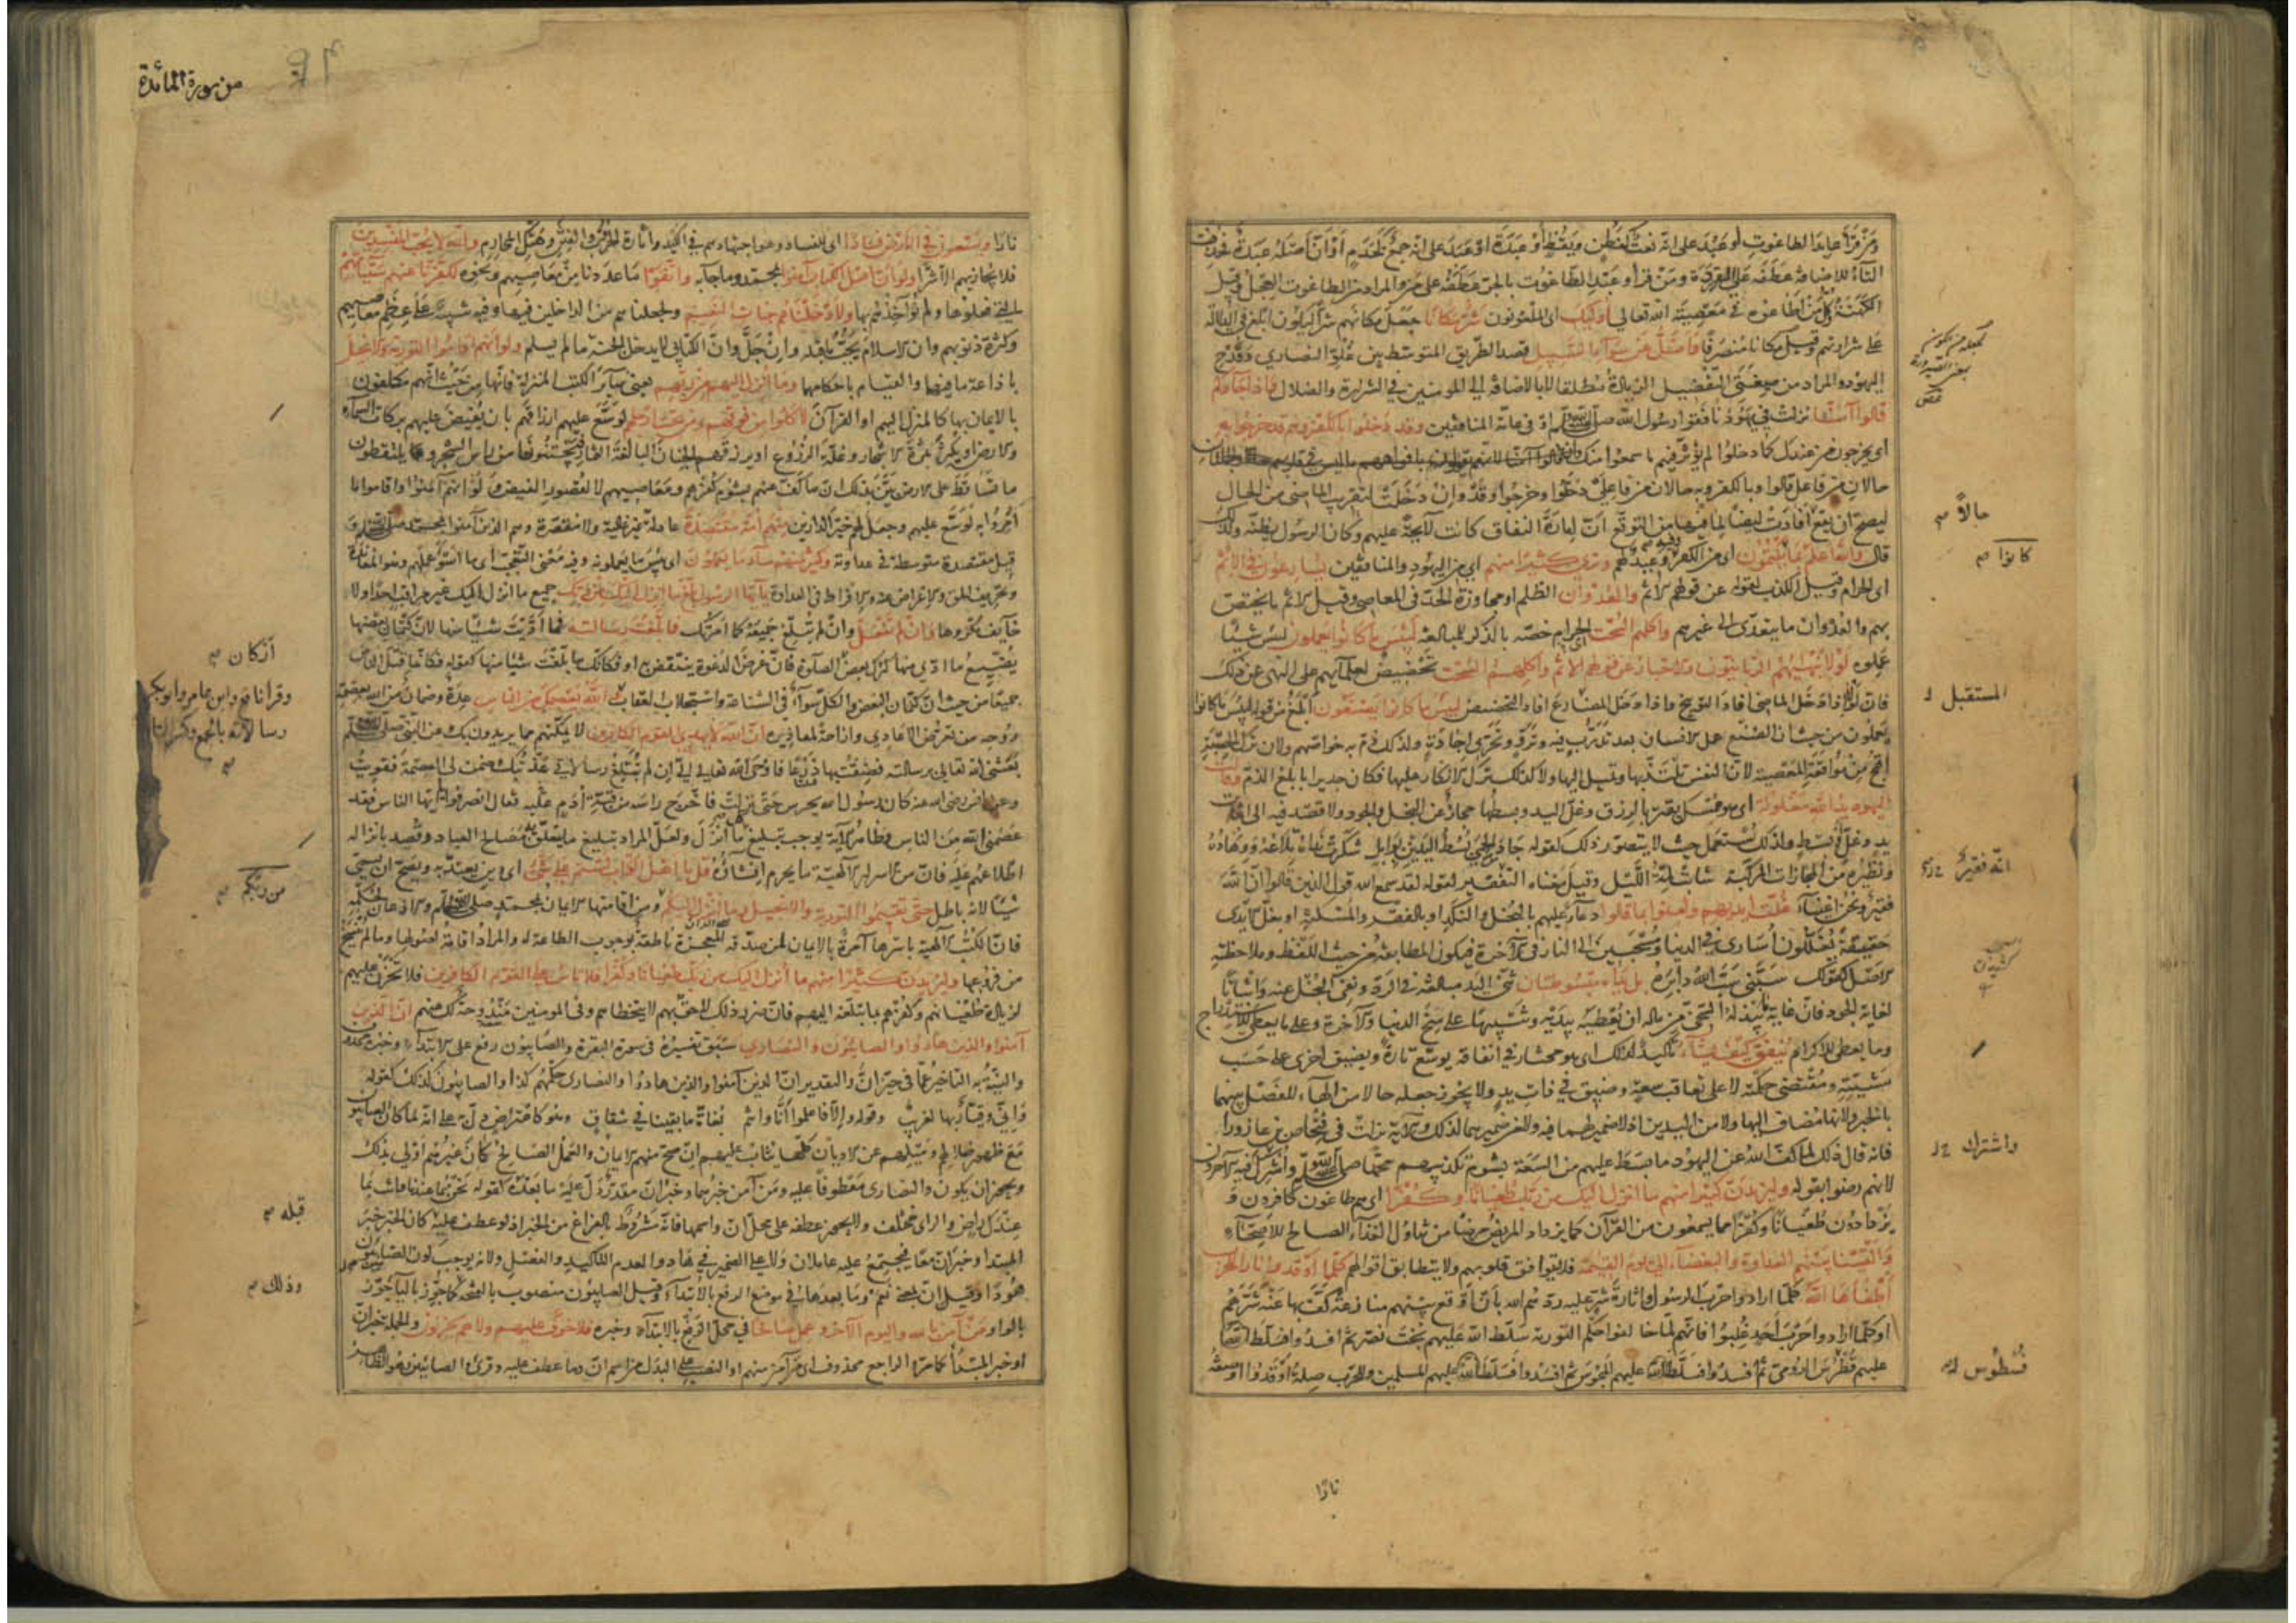 ومن قرأ عابد الطاغوت او عبد على انه نعت كفطن ويقظ او عبدة او عبد على انه جمع كخدم او ان اصله عبدة فحذفت
التاء للاضافة عطفه على القردة ومن قرأ وعبد الطاغوت بالجر عطفه على من والمراد من الطاغوت العجل وقيل
الكهنة وكل من اطاعوه في معصية الله تعالى اولئك اى الملعونون شر مكانا جعل مكانهم شرا ليكون ابلغ في الدلالة
على شرارتهم وقيل مكانا منصرفا واضل عن سواء السبيل قصد الطريق المتوسط بين غلو النصارى وقدح
اليهود والمراد من صيغتي التفضيل الزيادة مطلقا لا بالاضافة الى المومنين في الشرارة والضلال واذا جاؤكم
قالوا آمنا نزلت في يهود نافقوا رسول الله صلى الله عليه وسلم او في عامة المنافقين وقد دخلوا بالكفر وهم قد خرجوا به
اى يخرجون من عندك كما دخلوا لم يؤثر فيهم ما سمعوا منك
حالان من فاعل قالوا وبالكفر وبه حالان من فاعلي دخلوا وخرجوا وقد وان دخلت لتقريب الماضى من الحال
ليصح ان يقع افادت ايضا لما فيها من التوقع ان امارة النفاق كانت لائحة عليهم وكان الرسول يظنه ولذلك
قال والله اعلم بما يكتمون اى من الكفر وفيه وعيد لهم وترى كثيرا منهم اى من اليهود والمنافقين يسارعون في الاثم
اى الحرام وقيل الكذب لقوله عن قولهم الاثم والعدوان الظلم او مجاوزة الحد في المعاصي وقيل الاثم ما يختص
بهم والعدوان ما يتعدى الى غيرهم واكلهم السحت الحرام خصه بالذكر للمبالغة لبئس ما كانوا يعملون لبئس شيئا
عملوه لولا ينهيهم الربانيون والاحبار عن قولهم الاثم واكلهم السحت تحضيض لعلمائهم على النهى عن ذلك
فان لولا اذا دخل الماضى افاد التوبيخ واذا دخل المضارع افاد التحضيض لبئس ما كانوا يصنعون ابلغ من قوله لبئس ما كانوا
يعملون من حيث ان الصنع عمل الانسان بعد تدرب فيه وترو وتحرى اجادة ولذلك ذم به خواصهم ولان ترك الحسبة
اقبح من مواقعة المعصية لان النفس تلتذ بها وتميل اليها ولا كذلك ترك الانكار عليها فكان جديرا بابلغ الذم وقالت
اليهود يد الله مغلولة اى هو ممسك يقتر بالرزق وغل اليد وبسطها مجاز عن البخل والجود ولا قصد فيه الى اثبات
يد وغل او بسط ولذلك يستعمل حيث لا يتصور ذلك كقوله جاد الحمى بسط اليدين بوابل شكرت نداه تلاعه ووهاده
ونظيره من المجازات المركبة شابت لمة الليل وقيل معناه انه فقير لقوله لقد سمع الله قول الذين قالوا ان الله
فقير ونحن اغنياء غلت ايديهم ولعنوا بما قالوا دعاء عليهم بالبخل والنكد او بالفقر والمسكنة او بغل الايدى
حقيقة يغللون اسارى في الدنيا ومسحبين الى النار في الآخرة فيكون المطابقة من حيث اللفظ وملاحظة
الاصل كقولك سبني سب الله دابره بل يداه مبسوطتان ثنى اليد مبالغة في الرد ونفى البخل عنه واثباتا
لغاية الجود فان غاية ما يبذله السخى من ماله ان يعطيه بيديه وتنبيها على منح الدنيا والآخرة وعلى ما يعطى للاستدراج
وما يعطى للاكرام ينفق كيف يشاء تأكيد لذلك اى هو مختار في انفاقه يوسع تارة ويضيق اخرى على حسب
مشيته ومقتضى حكمته لا على تعاقب سعة وضيق في ذات يد ولا يجوز جعله حالا من الهاء للفصل بينهما
بالخبر ولانها مضاف اليها ولا من اليدين اذ لا ضمير لهما فيه ولا من ضميرهما لذلك والآية نزلت في فنحاص بن عازوراء
فانه قال ذلك لما كف الله عن اليهود ما بسط عليهم من السعة بشوم تكذيبهم محمدا صلى الله عليه وسلم واشرك فيه الآخرون
لانهم رضوا بقوله وليزيدن كثيرا منهم ما انزل اليك من ربك طغيانا وكفرا اى هم طاغون كافرون و
يزدادون طغيانا وكفرا بما يسمعون من القرآن كما يزداد المريض مرضا من تناول الغذاء الصالح للاصحاء
والقينا بينهم العداوة والبغضاء الى يوم القيمة فلا يتوافق قلوبهم ولا يتطابق اقوالهم كلما اوقدوا نارا للحرب
اطفأها الله كلما ارادوا حرب الرسول واثارة شر عليه ردهم الله بان اوقع بينهم منازعة كف بها عنه شرهم
او كلما ارادوا حرب احد غلبوا فانهم لما خالفوا حكم التورية سلط الله عليهم بخت نصر ثم افسدوا فسلط الله
عليهم فطرس الرومى ثم افسدوا فسلط الله عليهم المجوس ثم افسدوا فسلط الله عليهم المسلمين وللحرب صلة اوقدوا او صفة
نارا
حالاً
كانوا
المستقبل
انه فقير
واشترك
فسطوس
من سورة المائدة
نارا ويسعون في الارض فسادا اى للفساد وهو اجتهادهم في الكيد واثارة الحروب والفتن وهتك المحارم والله لا يحب المفسدين
فلا يجازيهم الا شرا ولو ان اهل الكتاب آمنوا بمحمد وما جاء به واتقوا ما عددنا من معاصيهم ونحوه لكفرنا عنهم سيئاتهم
التى فعلوها ولم نؤاخذهم بها ولادخلناهم جنات النعيم ولجعلناهم من الداخلين فيها وفيه تنبيه على عظم معاصيهم
وكثرة ذنوبهم وان الاسلام يجب ما قبله وان جل وان الكتابى لا يدخل الجنة ما لم يسلم ولو انهم اقاموا التورية والانجيل
باذاعة ما فيهما والقيام باحكامها وما انزل اليهم من ربهم يعنى سائر الكتب المنزلة فانها من حيث انهم مكلفون
بالايمان بها كالمنزل اليهم او القرآن لاكلوا من فوقهم ومن تحت ارجلهم لوسع عليهم ارزاقهم بان يفيض عليهم بركات السماء
والارض او يكثر ثمرة الاشجار وغلة الزروع او يرزقهم الجنان اليانعة الثمار فيجتنونها من راس الشجر و يلتقطون
ما تساقط على الارض بين بذلك ان ما كف عنهم بشوم كفرهم ومعاصيهم لا لقصور الفيض ولو انهم آمنوا واقاموا ما
امروا به لوسع عليهم وجعل لهم خير الدارين منهم امة مقتصدة عادلة غير غالية ولا مقصرة وهم الذين آمنوا بمحمد صلى الله عليه وسلم و
قيل مقتصدة متوسطة في عداوته وكثير منهم ساء ما يعملون اى بئس ما يعملونه وفيه معنى التعجب اى ما اسوأ عملهم وهو المعاندة
وتحريف الحق والاعراض عنه والافراط في العداوة يا ايها الرسول بلغ ما انزل اليك من ربك جميع ما انزل اليك غير مراقب احدا ولا
خائف مكروها وان لم تفعل وان لم تبلغ جميعه كما امرتك فما بلغت رسالته فما اديت شيئا منها لان كتمان بعضها
يضيع ما ادى منها كترك بعض الصلوة فان غرض الدعوة ينتقض به او فكانك ما بلغت شيئا منها كقوله فكانما قتل الناس
جميعا من حيث ان كتمان البعض والكل سواء في الشناعة واستجلاب العقاب والله يعصمك من الناس عدة وضمان من الله بعصمة
روحه من تعرض الاعادى وازاحة لمعاذيره ان الله لا يهدى القوم الكافرين لا يمكنهم مما يريدون بك وعن النبى صلى الله عليه وسلم
بعثنى الله تعالى برسالته فضقت بها ذرعا فاوحى الله تعالى الى ان لم تبلغ رسالاتى عذبتك وضمن لى العصمة فقويت
وعن انس رضى الله عنه كان رسول الله يحرس حتى نزلت فاخرج راسه من قبة ادم عليه فقال انصرفوا ايها الناس فقد
عصمنى الله من الناس وظاهر الآية يوجب تبليغ كل ما انزل ولعل المراد تبليغ ما يتعلق به مصالح العباد وقصد بانزاله
اطلاعهم عليه فان من الاسرار الالهية ما يحرم افشاؤه قل يا اهل الكتاب لستم على شىء اى دين يعتد به ويصح ان يسمى
شيئا لانه باطل حتى تقيموا التورية والانجيل وما انزل اليكم ومن اقامتها الايمان بمحمد صلى الله عليه وسلم والاذعان لحكمه
فان الكتب الالهية باسرها آمرة بالايمان لمن صدقه المعجزة ناطقة بوجوب الطاعة له والمراد اقامة اصولها وما لم ينسخ
من فروعها وليزيدن كثيرا منهم ما انزل اليك من ربك طغيانا وكفرا فلا تاس على القوم الكافرين فلا تحزن عليهم
لزيادة طغيانهم وكفرهم بما تبلغه اليهم فان ضرر ذلك لاحق بهم لا يتخطاهم وفى المومنين مندوحة لك عنهم ان الذين
آمنوا والذين هادوا والصابئون والنصارى سبق تفسيره فى سورة البقرة والصابئون رفع على الابتداء وخبره محذوف
والنية به التاخير عما فى حيز ان والتقدير ان الذين آمنوا والذين هادوا والنصارى حكمهم كذا والصابئون كذلك كقوله
فانى وقيار بها لغريب وقوله والا فاعلموا انا وانتم بغاة ما بقينا فى شقاق وهو كاعتراض دل به على انه لما كان الصابئون
مع ظهور ضلالهم وميلهم عن الاديان كلها يتاب عليهم ان صح منهم الايمان والعمل الصالح كان غيرهم اولى بذلك
ويجوز ان يكون والنصارى معطوفا عليه ومن آمن خبرهما وخبر ان مقدر دل عليه ما بعده كقوله نحن بما عندنا وانت بما
عندك راض والراى مختلف ولا يجوز عطفه على محل ان واسمها فانه مشروط بالفراغ من الخبر اذ لو عطف عليه كان الخبر خبر
المبتدا وخبر ان معا فيجتمع عليه عاملان ولا على الضمير فى هادوا لعدم التاكيد والفصل ولانه يوجب كون الصابئين
هودا وقيل ان بمعنى نعم وما بعدها فى موضع الرفع بالابتداء وقيل الصابئون منصوب بالفتحة كما جوز بالياء جوز
بالواو من آمن بالله واليوم الآخر وعمل صالحا فى محل الرفع بالابتداء وخبره فلا خوف عليهم ولا هم يحزنون والجملة خبر ان
او خبر المبتدأ كما مر والراجع محذوف اى من آمن منهم او النصب على البدل من اسم ان وما عطف عليه وقرئ والصابئين وهو الظاهر
اركان
وقرا نافع وابن عامر وابو بكر
رسالاته بالجمع وكسر التاء
من ربكم
قبله
وذلك